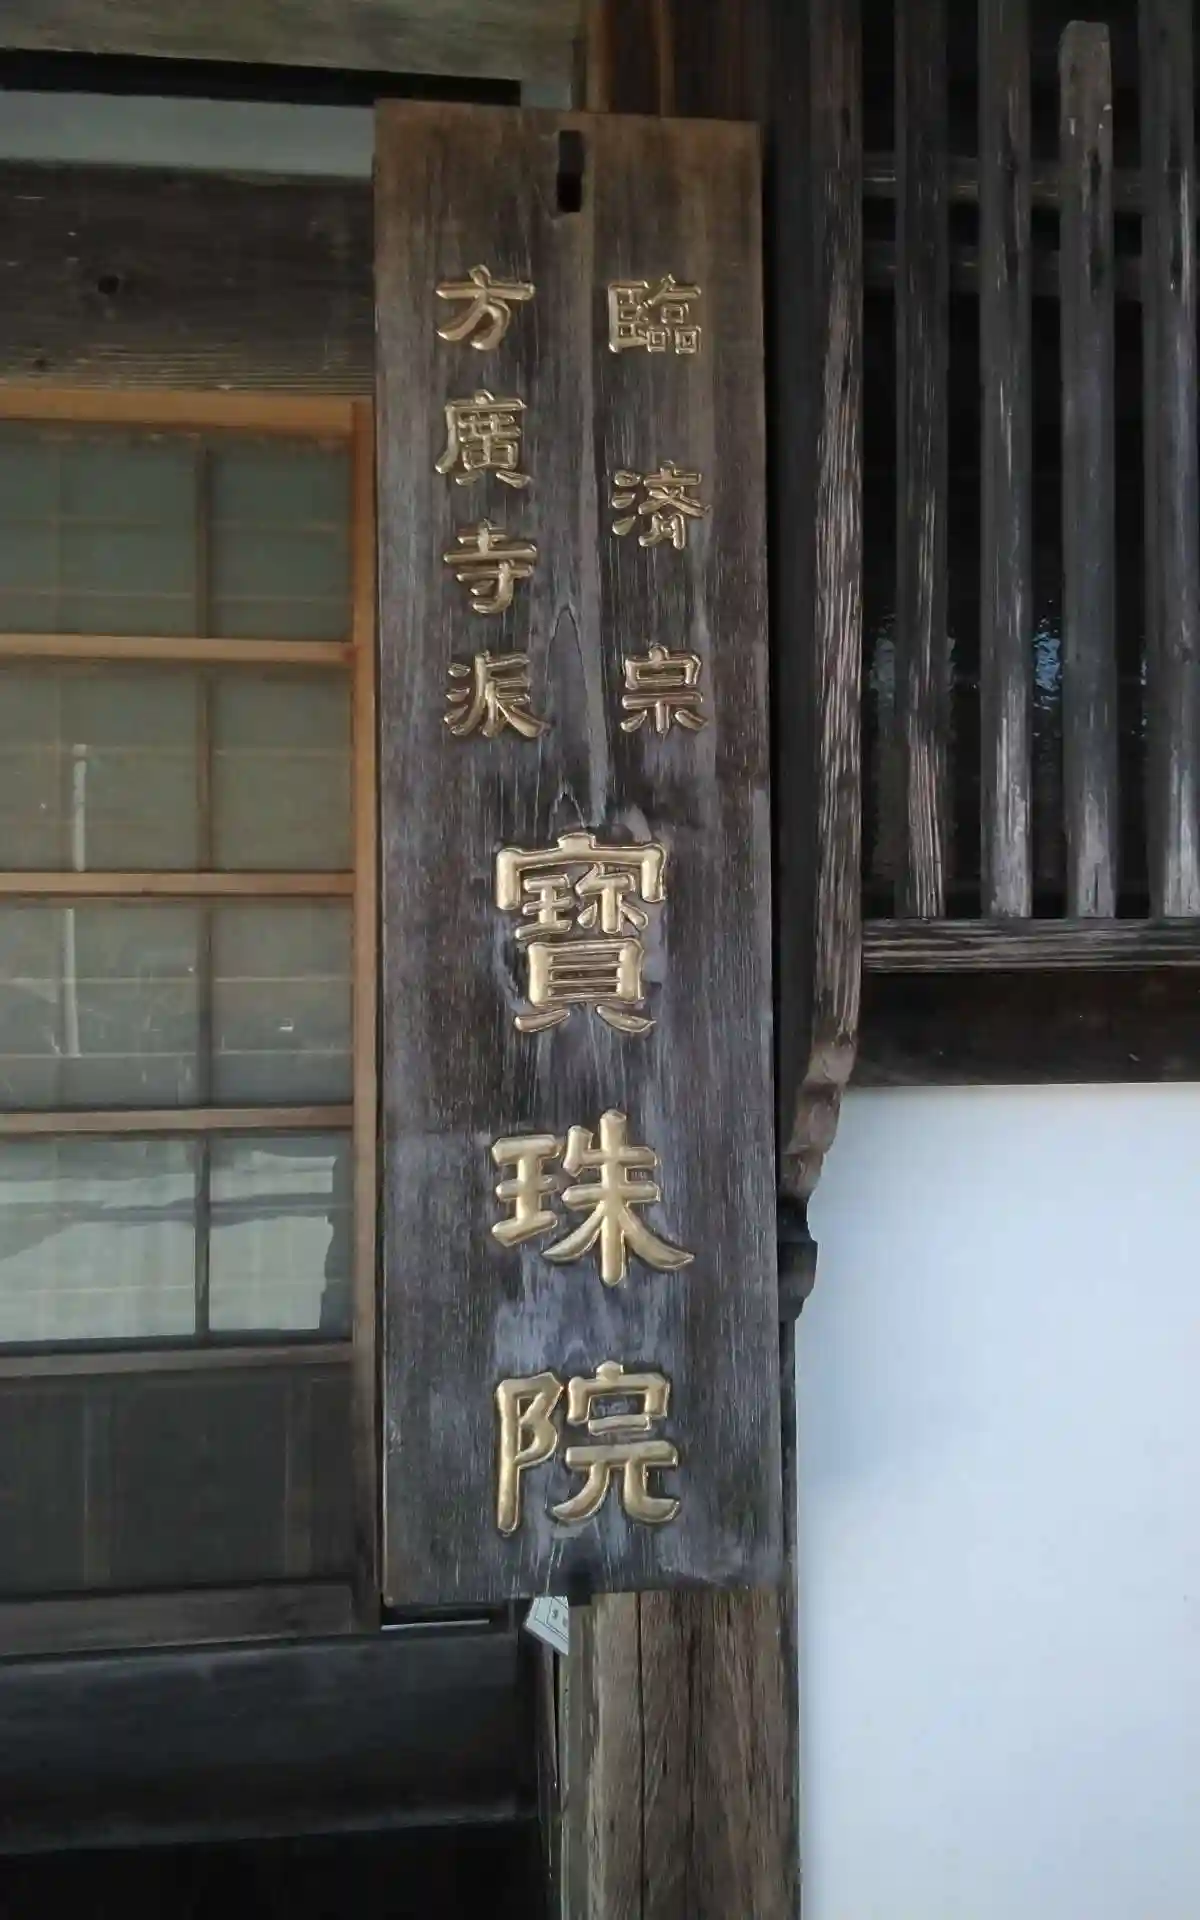 臨済宗
方廣寺派
寳珠院